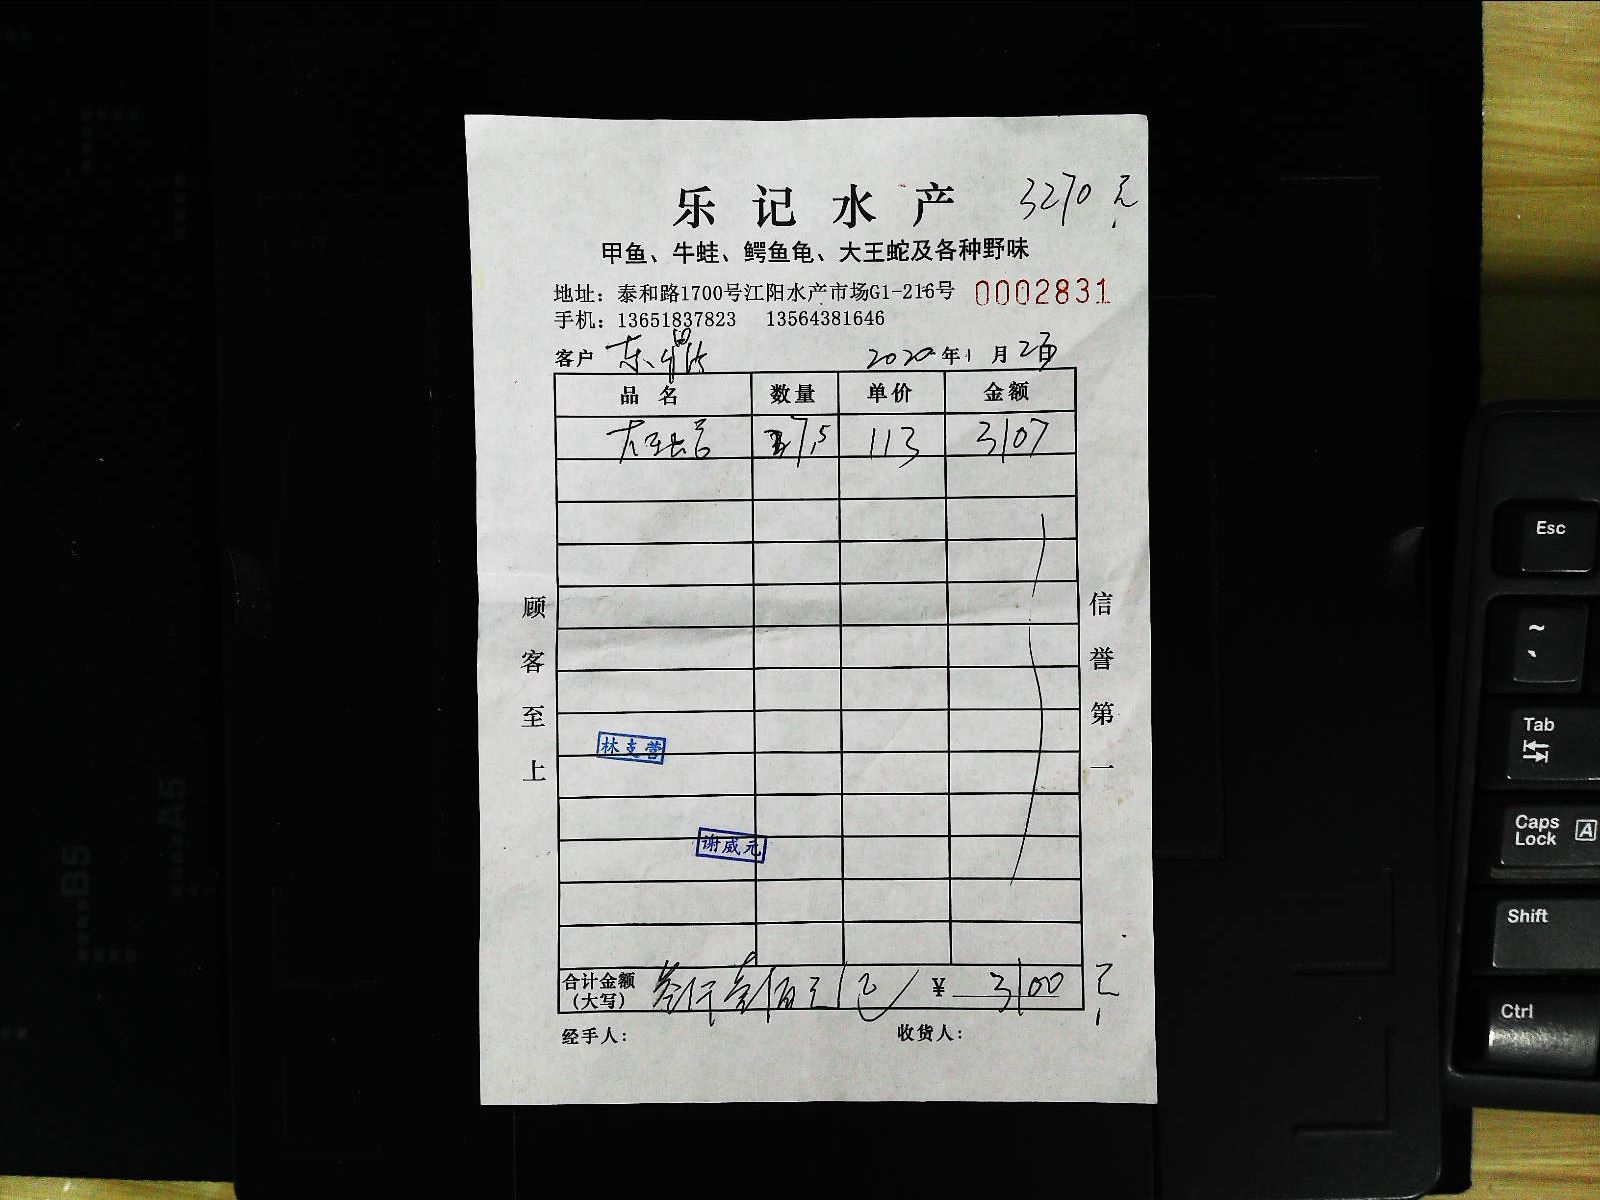 乐记水产 3270元
甲鱼、牛蛙、鳄鱼龟、大王蛇及各种野味
地址：泰和路1700号江阳水产市场G1-216号 0002831
手机：13651837823 13564381646
客户 东 2020年1月2日
品名 数量 单价 金额
大王 7.5 113 3107
顾客至上
信誉第一
林支营
谢威元
合计金额（大写） 叁仟壹佰元 ¥ 3100元
经手人： 收货人：
B5
A5
Esc
~
`
Tab
Caps Lock A
Shift
Ctrl